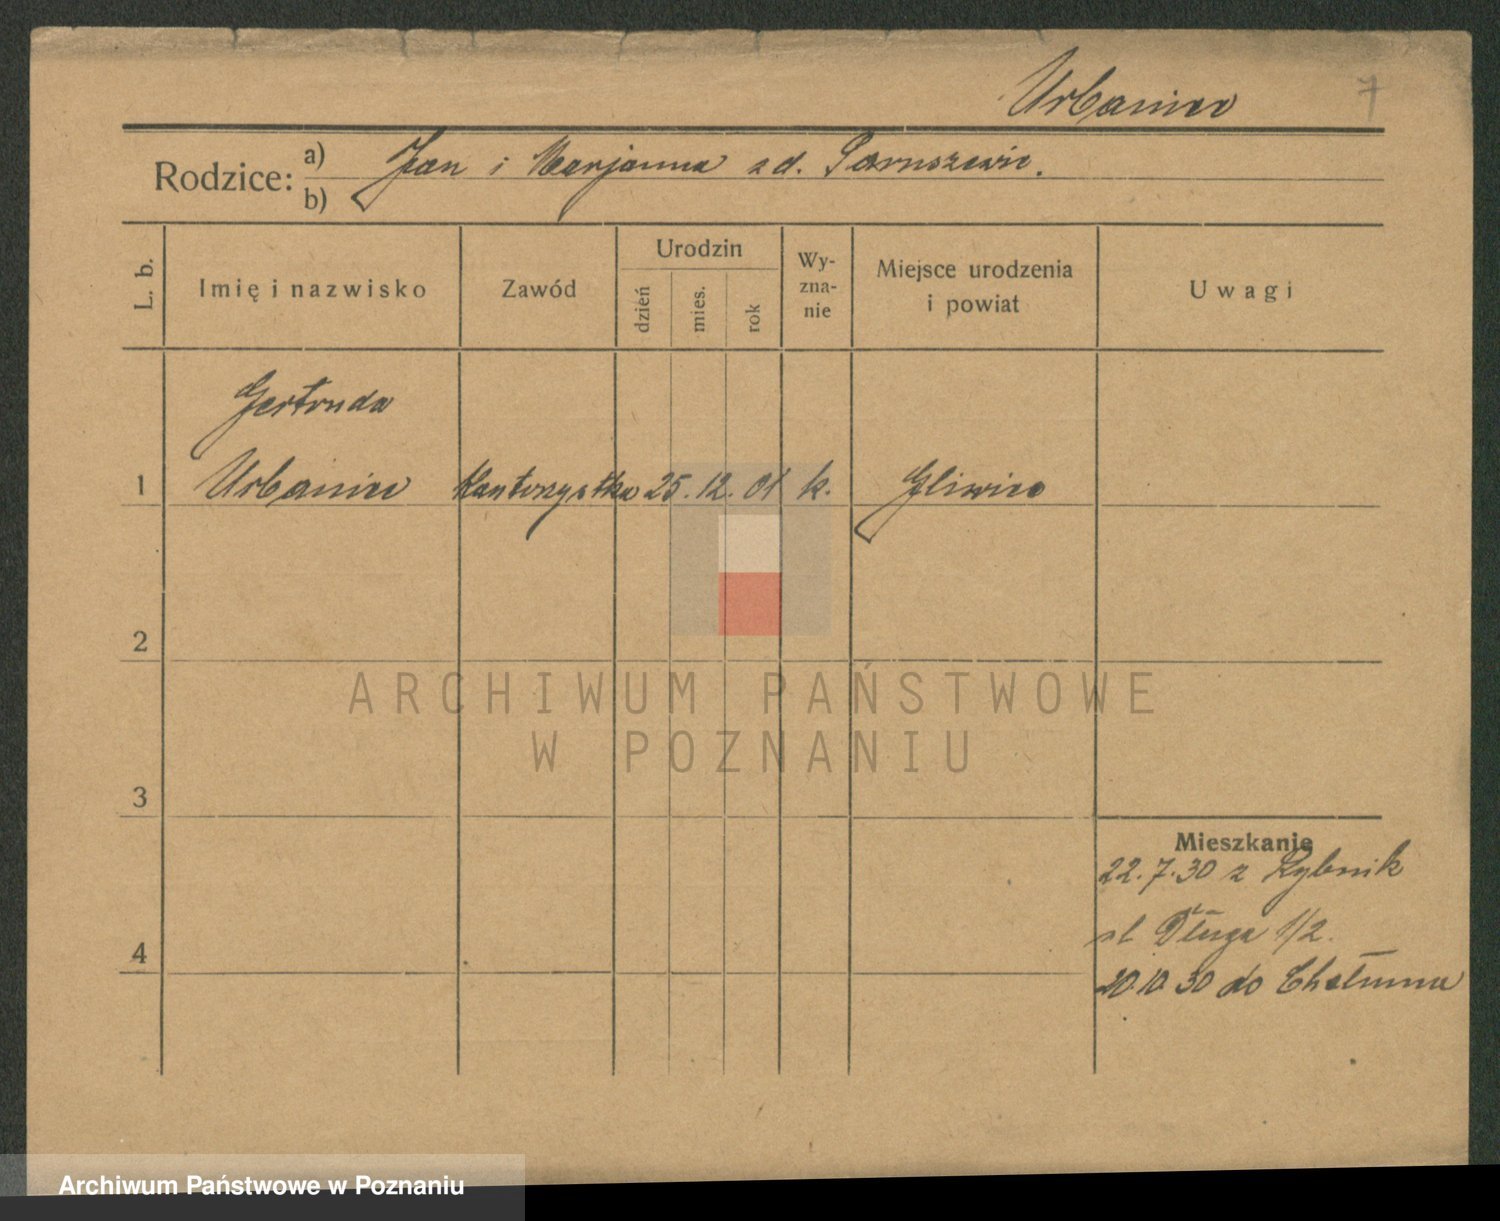 Urbaniec 7
Rodzice: a) Jan i Marjanna z d. Paruszewic.
b)
L. b. Imię i nazwisko Zawód Urodzin dzień mies. rok Wy-zna-nie Miejsce urodzenia i powiat Uwagi
Gertruda
1 Urbaniec Kantorzystka 25. 12. 01 k. Gliwice
2
ARCHIWUM PAŃSTWOWE
W POZNANIU
3
Mieszkanie
22.7.30 z Rybnik
ul Długa 1/2.
4
20.10.30 do Chełmna
Archiwum Państwowe w Poznaniu